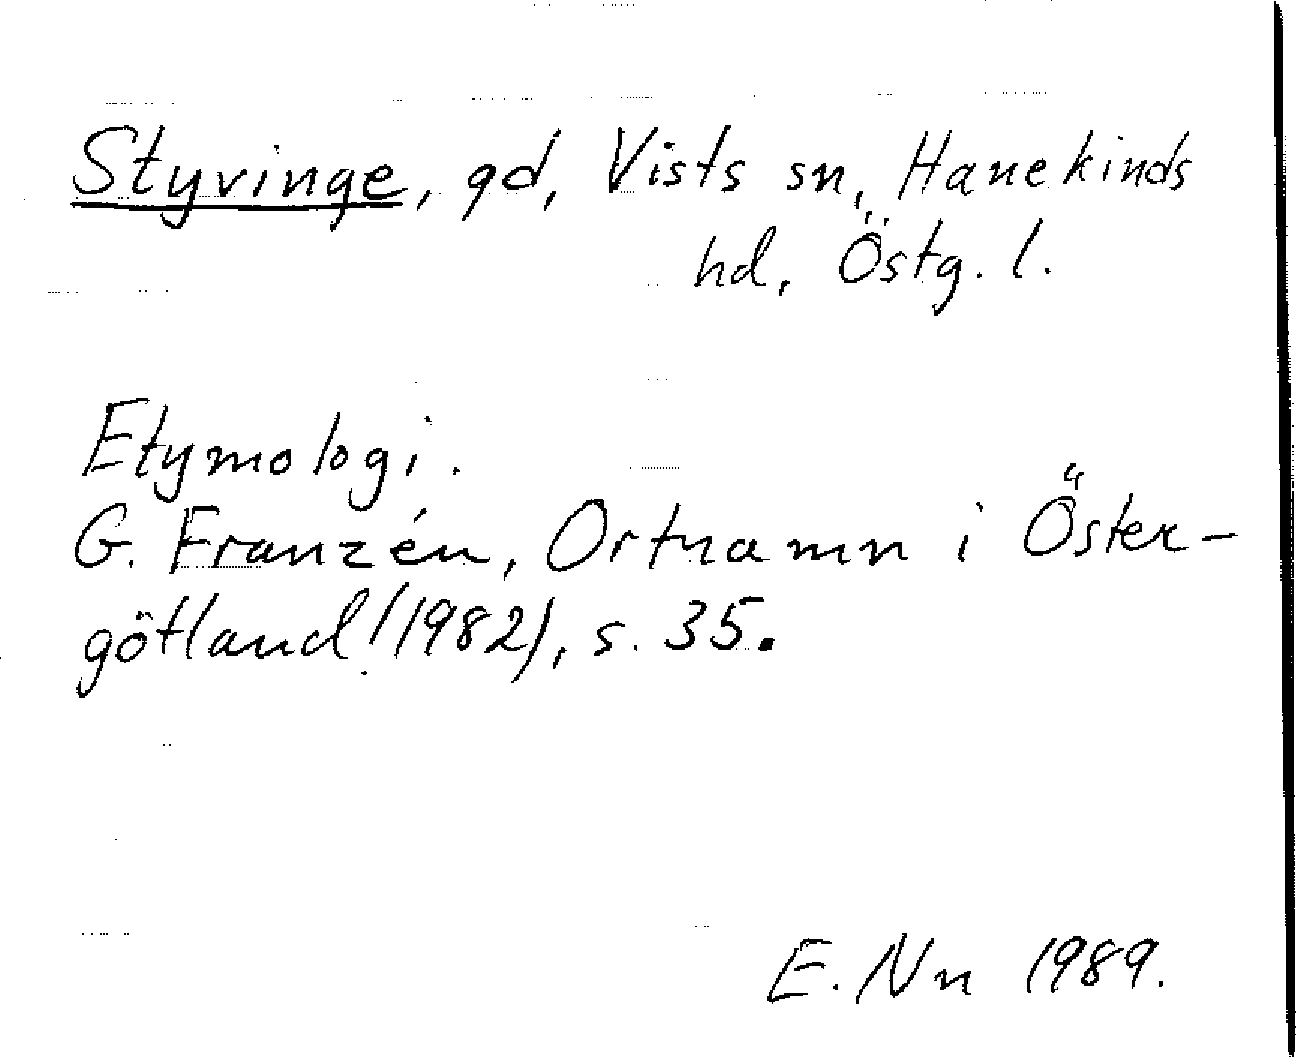 Styvinge, gd, Vists sn, Hanekinds
hd, Östg. l.
Etymologi.
G. Franzén, Ortnamn i Öster-
götland (1982), s. 35.
E. Nn 1989.